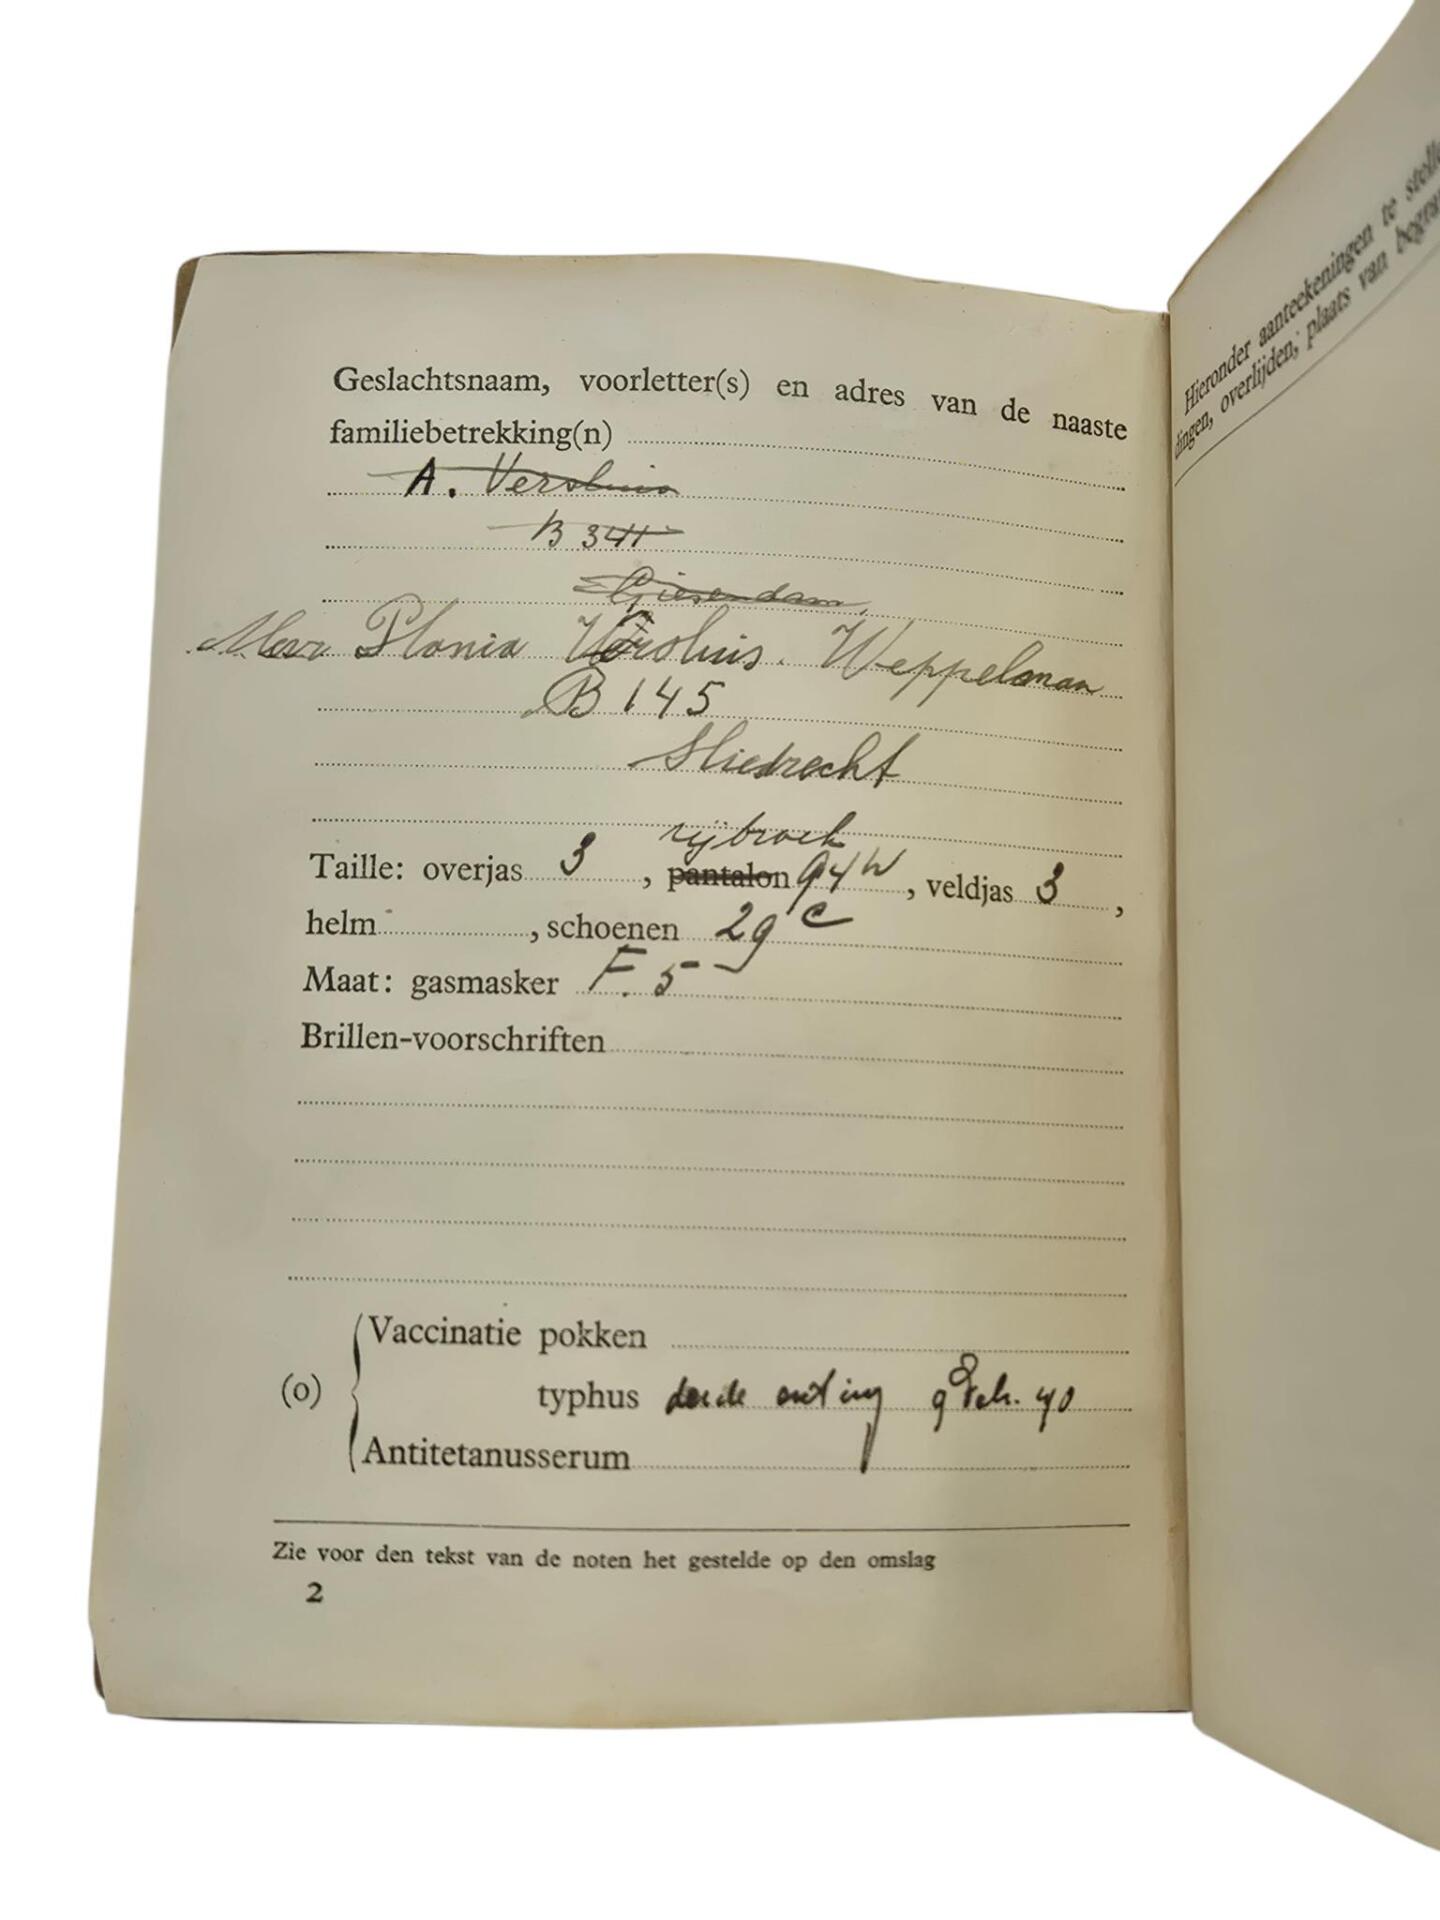 Geslachtsnaam, voorletter(s) en adres van de naaste
familiebetrekking(n)
A. Versluis
B 341
Giesendam
Plonia Versluis. Weppelman
B 145
Sliedrecht
rijbroek
Taille: overjas 3, pantalon 94 W, veldjas 3,
helm, schoenen 29 C
Maat: gasmasker F. 5
Brillen-voorschriften
Vaccinatie pokken
(o) typhus derde enting 9 Feb. 40
Antitetanusserum
Zie voor den tekst van de noten het gestelde op den omslag
2
Hieronder aanteekeningen te
dingen, overlijden, plaats van